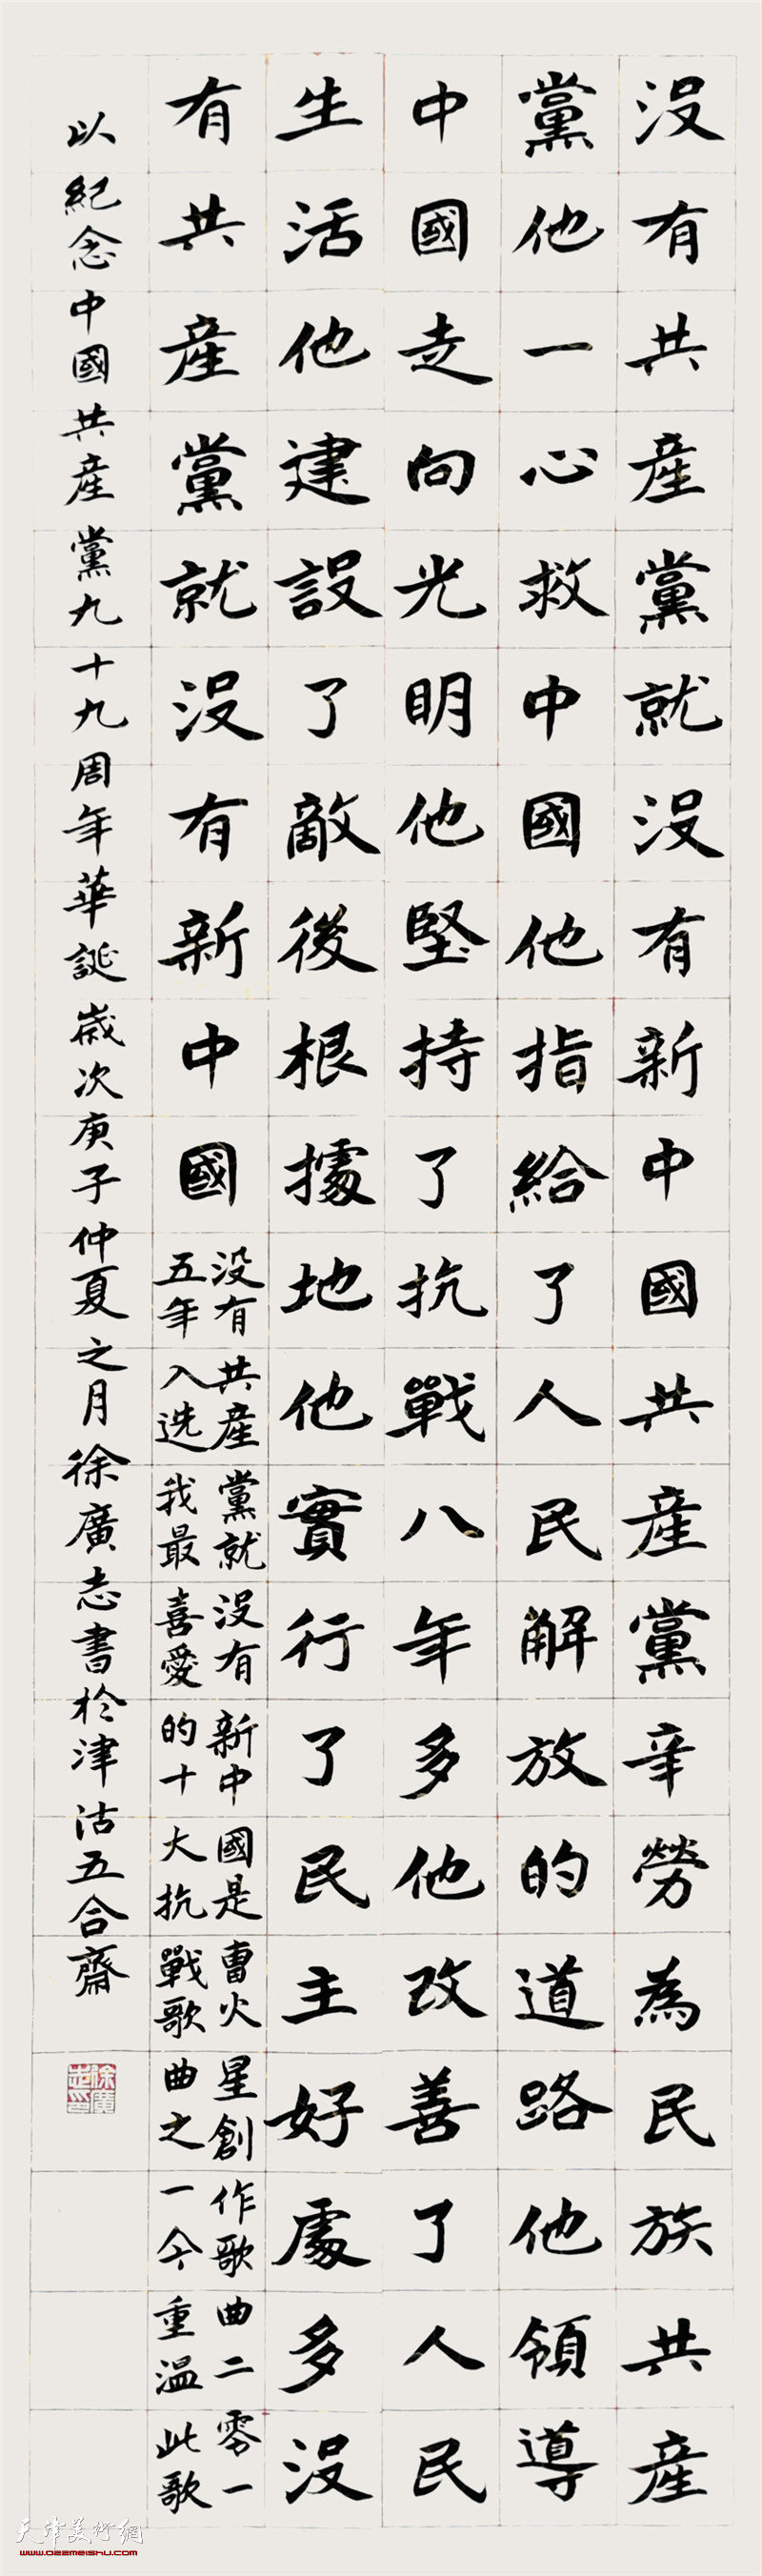 没有共産黨就没有新中國共産黨辛勞為民族共産
黨他一心救中國他指給了人民解放的道路他領導
中國走向光明他堅持了抗戰八年多他改善了人民
生活他建設了敵後根據地他實行了民主好處多没
有共産黨就没有新中國
没有共産黨就没有新中國是曹火星創作歌曲二零一
五年入选我最喜愛的十大抗戰歌曲之一今重温此歌
以紀念中國共産黨九十九周年華誕歲次庚子仲夏之月徐廣志書於津沽五合齋
徐廣志印
天津美術網
www.022meishu.com